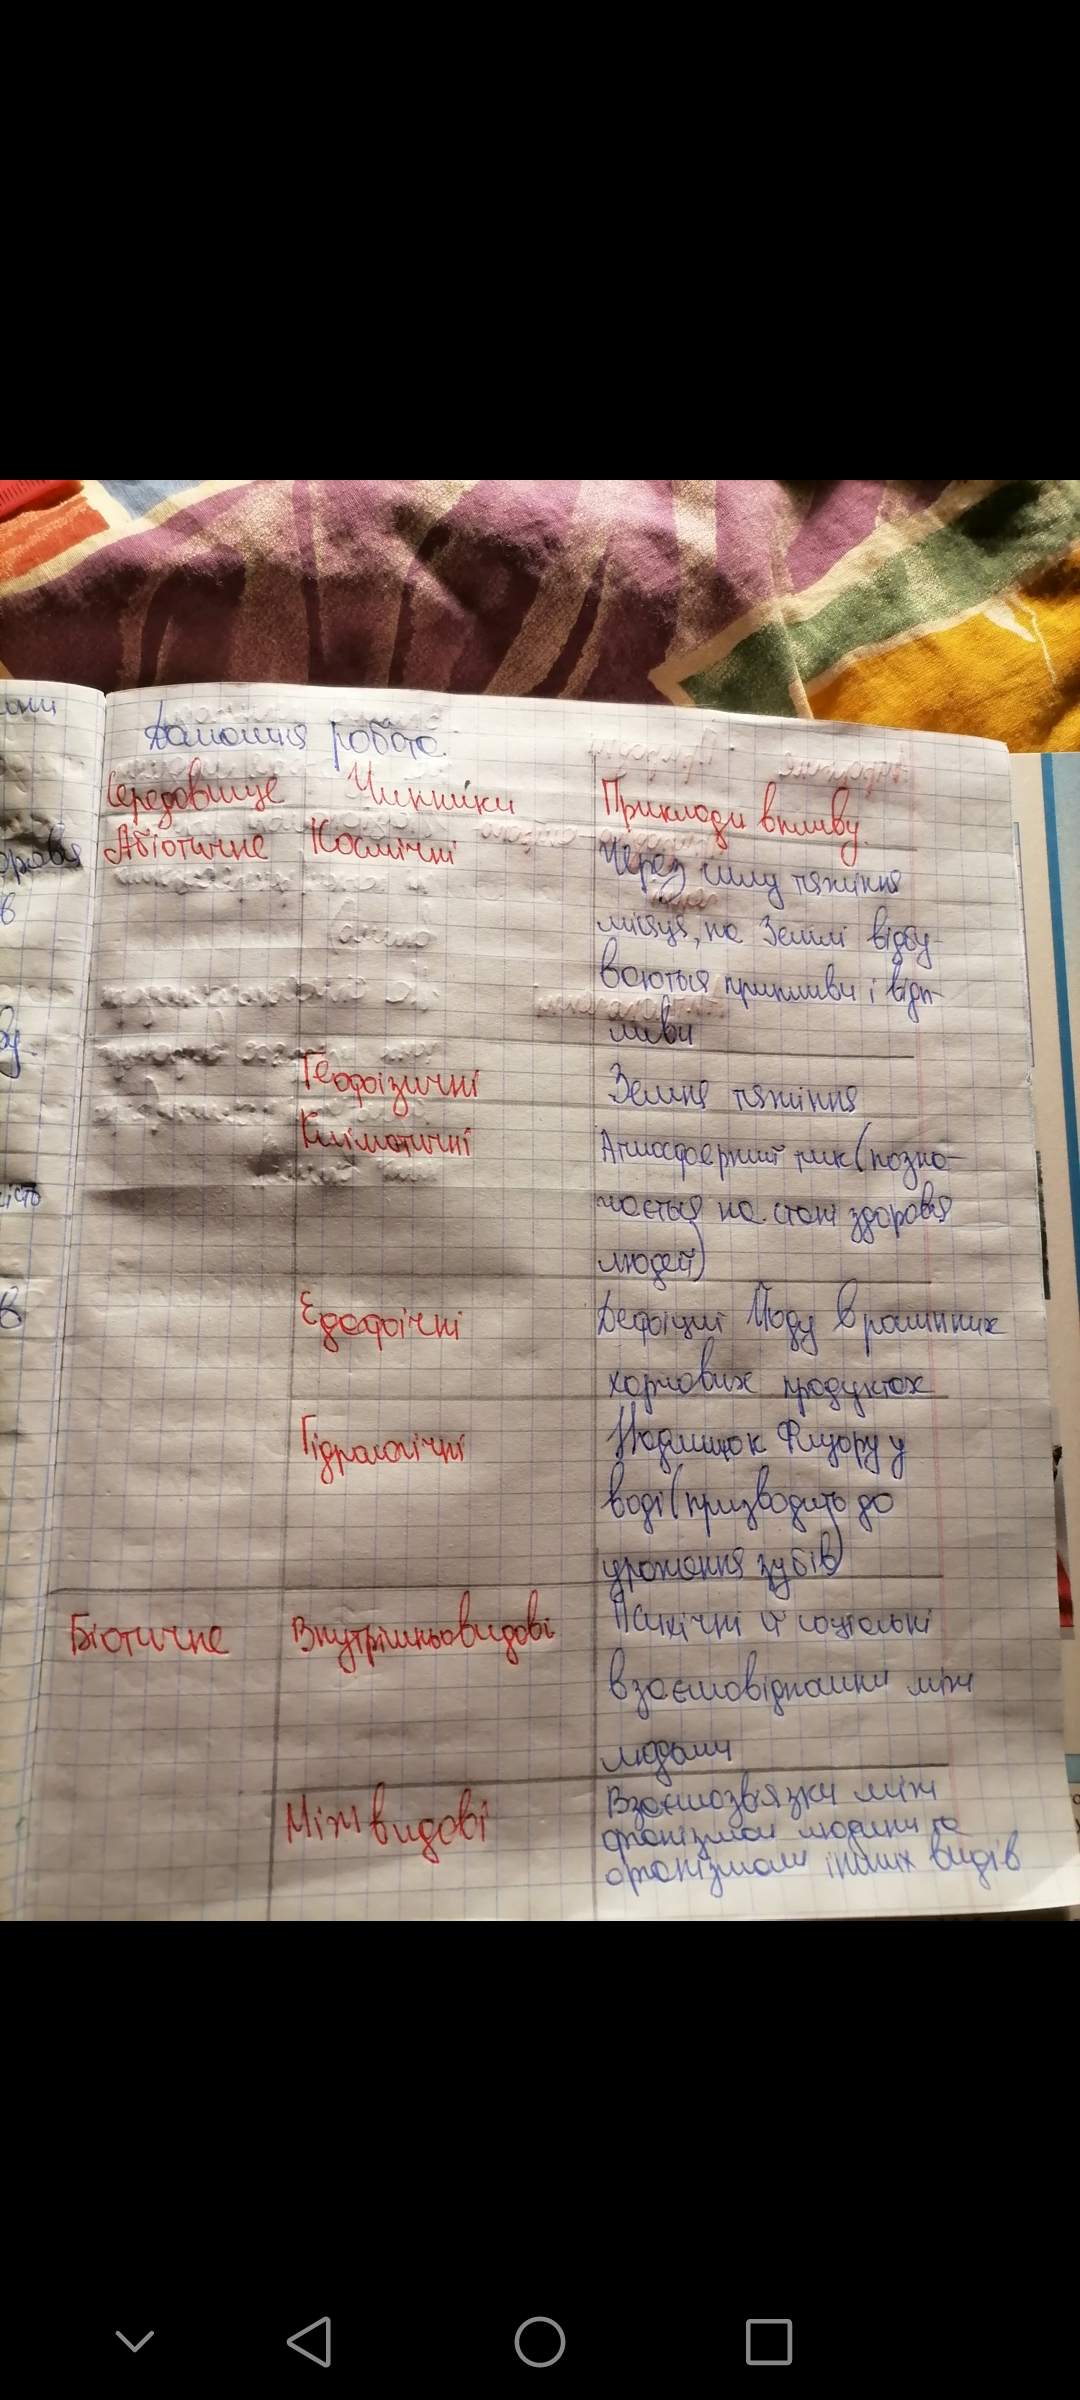 Домашня робота.
Середовище Чинники Приклади впливу
Абіотичне Космічні Через силу тяжіння
місяця, на Землі відбу-
ваються припливи і відп-
ливи
Геофізичні Земне тяжіння
Кліматичні Атмосферний тиск (позна-
чається на стані здоровя
людей)
Едафічні Дефіцит Йоду в рослинних
харчових продуктах
Гідрологічні Надлишок Флуору у
воді (призводить до
ураження зубів)
Біотичне Внутрішньовидові Психічні й соціальні
взаємовідносини між
людьми
Міжвидові Взаємозв'язки між
організмом людини та
організмами інших видів